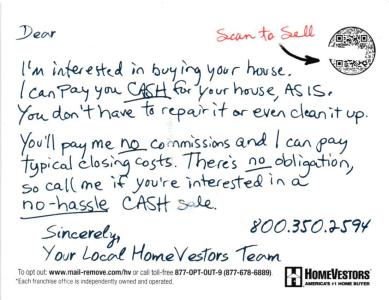 Dear
Scan to Sell
I'm interested in buying your house.
I can pay you CASH for your house, AS IS.
You don't have to repair it or even clean it up.
You'll pay me no commissions and I can pay
typical closing costs. There's no obligation,
so call me if you're interested in a
no-hassle CASH sale.
Sincerely,
800.350.2594
Your Local HomeVestors Team
To opt out: www.mail-remove.com/hv or call toll-free 877-OPT-OUT-9 (877-678-6889).
*Each franchise office is independently owned and operated.
HOMEVESTORS
AMERICA'S #1 HOME BUYER